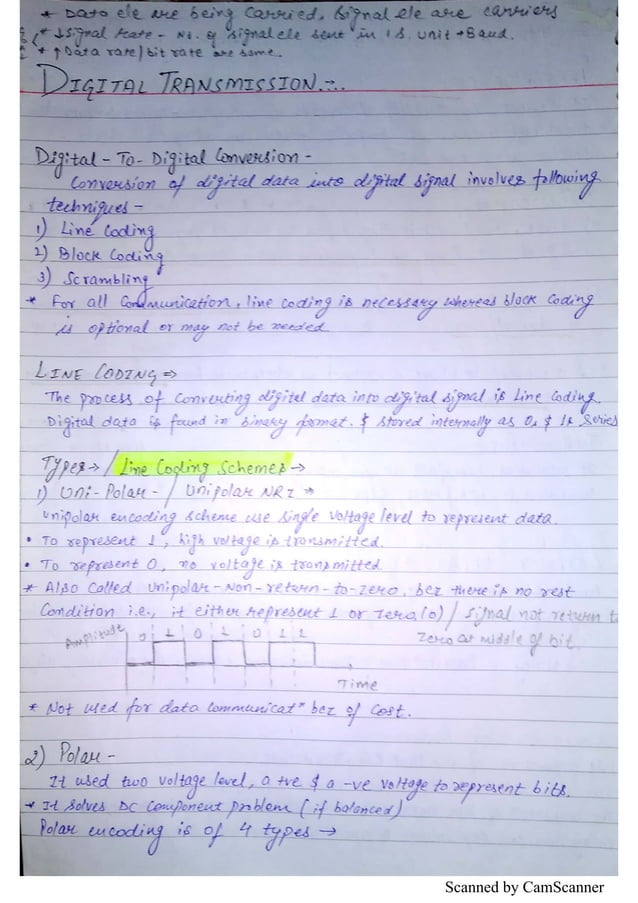 * Data ele are being carried, Signal ele are carriers
* ↓Signal Rate - No. of signal ele sent in 1 S. Unit → Baud.
* ↑ Data rate/bit rate are same.
DIGITAL TRANSMISSION :-.
Digital - To - Digital Conversion -
Conversion of digital data into digital signal involves following
techniques -
1) Line Coding
2) Block Coding
3) Scrambling
* For all Communication, line coding is necessary whereas block coding
is optional or may not be needed
LINE CODING ⇒
The process of converting digital data into digital signal is Line Coding.
Digital data is found in binary format. & stored internally as 0s & 1s Series
Types → / Line Coding Schemes →
1) Uni-Polar - / Unipolar NRZ ⇒
Unipolar encoding scheme use single voltage level to represent data.
• To represent 1, high voltage is transmitted.
• To represent 0, no voltage is transmitted
* Also called Unipolar-Non-return-to-zero, bcz there is no rest
Condition i.e., it either represent 1 or zero (0) / Signal not return to
zero at middle of bit.
Amplitude 0 1 0 1 0 1 1
Time
* Not used for data communicatⁿ bcz of Cost.
2) Polar -
It used two voltage level, a +ve & a -ve voltage to represent bits.
→ It solves DC component problem (if balanced)
Polar encoding is of 4 types →
Scanned by CamScanner